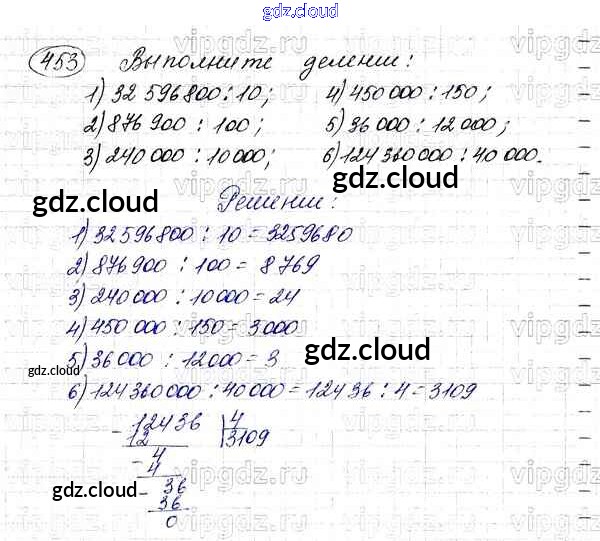 gdz.cloud
453 Выполните деление:
1) 32 596 800 : 10; 4) 450 000 : 150;
2) 876 900 : 100; 5) 36 000 : 12 000;
3) 240 000 : 10 000; 6) 124 360 000 : 40 000.
gdz.cloud gdz.cloud
Решение:
1) 32 596 800 : 10 = 3259680
2) 876 900 : 100 = 8 769
3) 240 000 : 10 000 = 24
4) 450 000 : 150 = 3000
gdz.cloud
5) 36 000 : 12 000 = 3
gdz.cloud
6) 124 360 000 : 40 000 = 12436 : 4 = 3109
- 12436 | 4
12 3109
- 4
4
- 36
gdz.cloud
36
0
vipgdz.ru